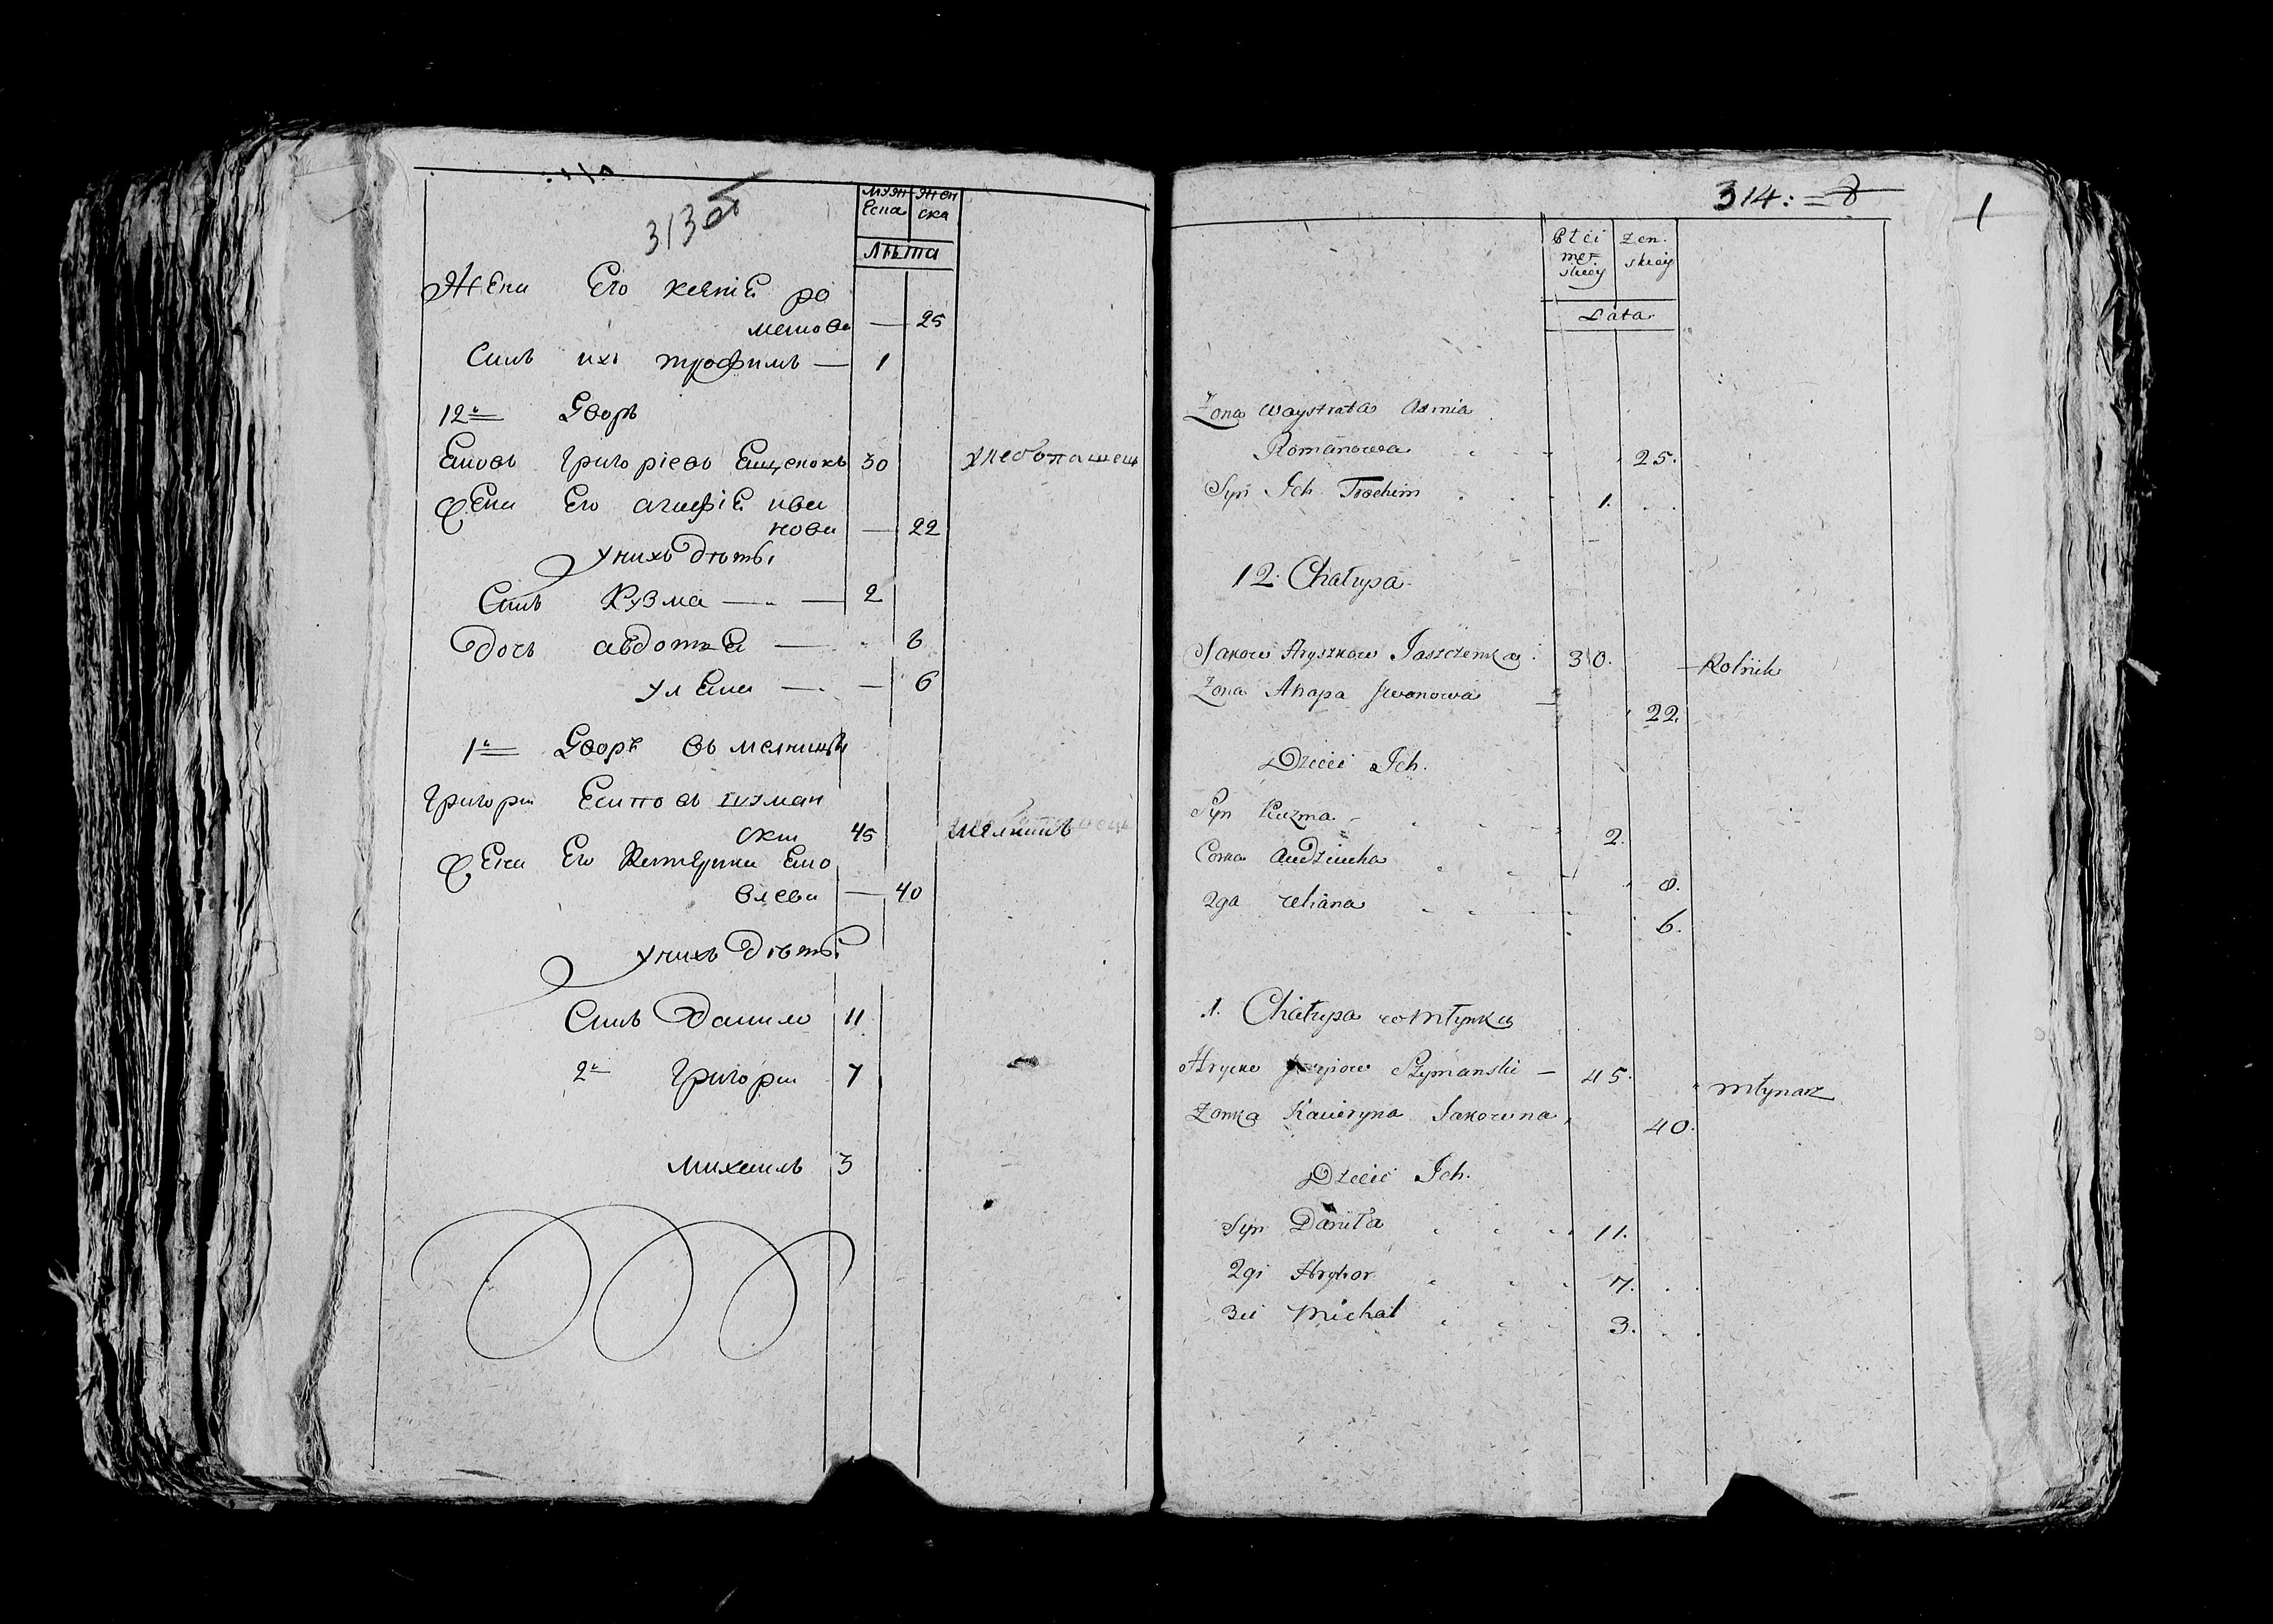 313 об
мужеска
женска
Лѣта
Жена Его ксениѣ ро
манова — 25
Синъ ихъ трофимъ — 1
12й Дворъ
Ековъ Григориевъ Ещенокъ 30 хлебопашец
Жена Его агафиѣ ива
нова — 22
У нихъ Дѣты
Синъ Кузма — 2
дочь авдотя — 8
улена — 6
1й Дворъ въ мелницы
Григори Есиповъ шиман
ски 45 мелникъ
Жена Его Катерина Еко
влева — 40
У нихъ Дѣты
Синъ Данило 11
2й Григори 7
михаилъ 3
314: = 8
1
Płci męzskiey
Żen. skiey
Lata
Żona
Romanowa 25.
Syn Ich Trochim 1.
12. Chałupa
Jakow Hryszkow Jaszczenka 30. Rolnik
Żona Ahapa Iwanowa 22.
Dzieci Ich.
Syn Kuzma 2.
Corka Audziucha 8.
2ga Uliana 6.
1. Chałupa w Młynku
Hrycko Szymanski — 45. Młynarz
Żonka Kateryna Jakowna, 40.
Dzieci Ich.
Syn Daniła 11.
2gi Hryhor 7.
3ci Michał 3.